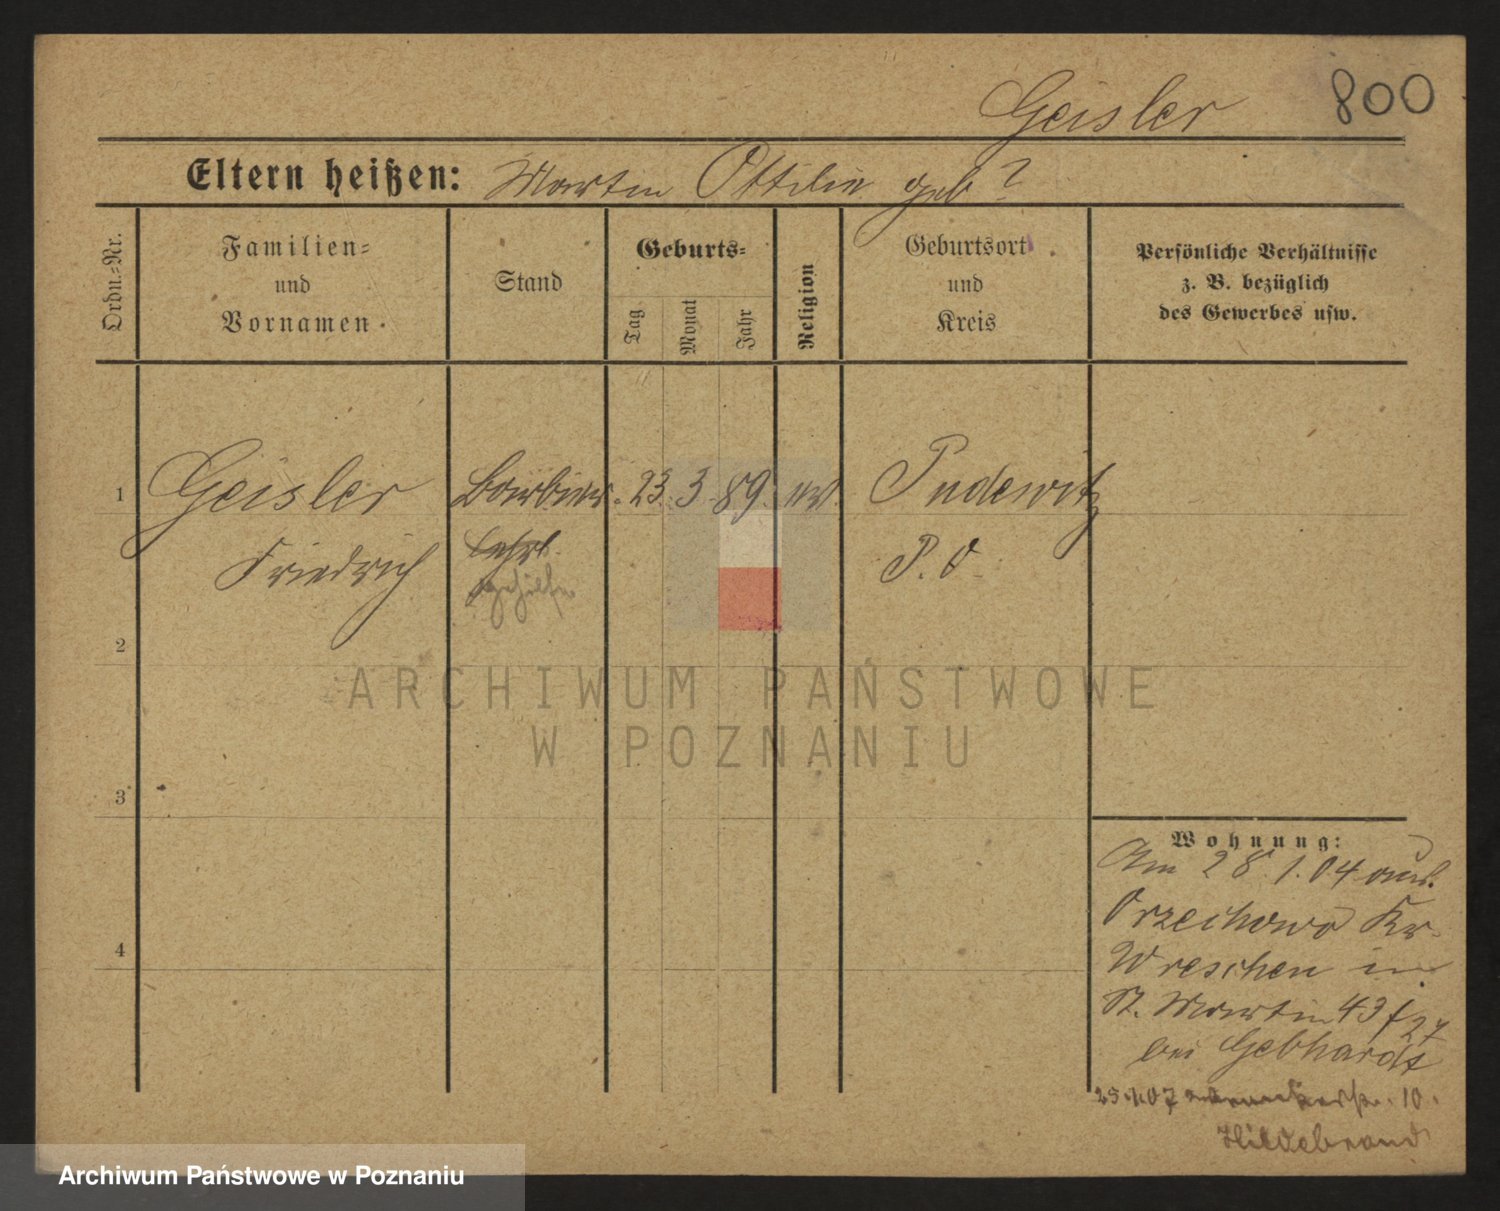 Geisler 800
Eltern heißen: Martin Ottilie geb?
Ordn.-Nr.
Familien-
und
Vornamen.
Stand
Geburts-
Tag
Monat
Jahr
Religion
Geburtsort
und
Kreis
Persönliche Verhältnisse
z. B. bezüglich
des Gewerbes usw.
1 Geisler Barbier 23. 3. 89. ev. Pudewitz
Friedrich Lehrl. P. O.
gehülfe
2
3
4
Wohnung:
Am 28.1.04 aus
Orzechowo Kr.
Wreschen in
St. Martin 43 f 27
bei Gebhardt
25.1.07 10.
Hildebrand
ARCHIWUM PAŃSTWOWE
W POZNANIU
Archiwum Państwowe w Poznaniu